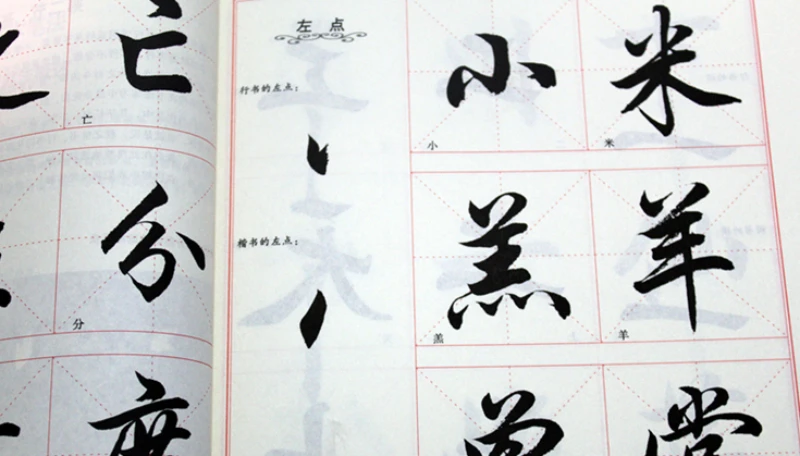 亡
亡
分
分
左点
行书的左点：
楷书的左点：
小 米
小 米
羔 羊
羔 羊